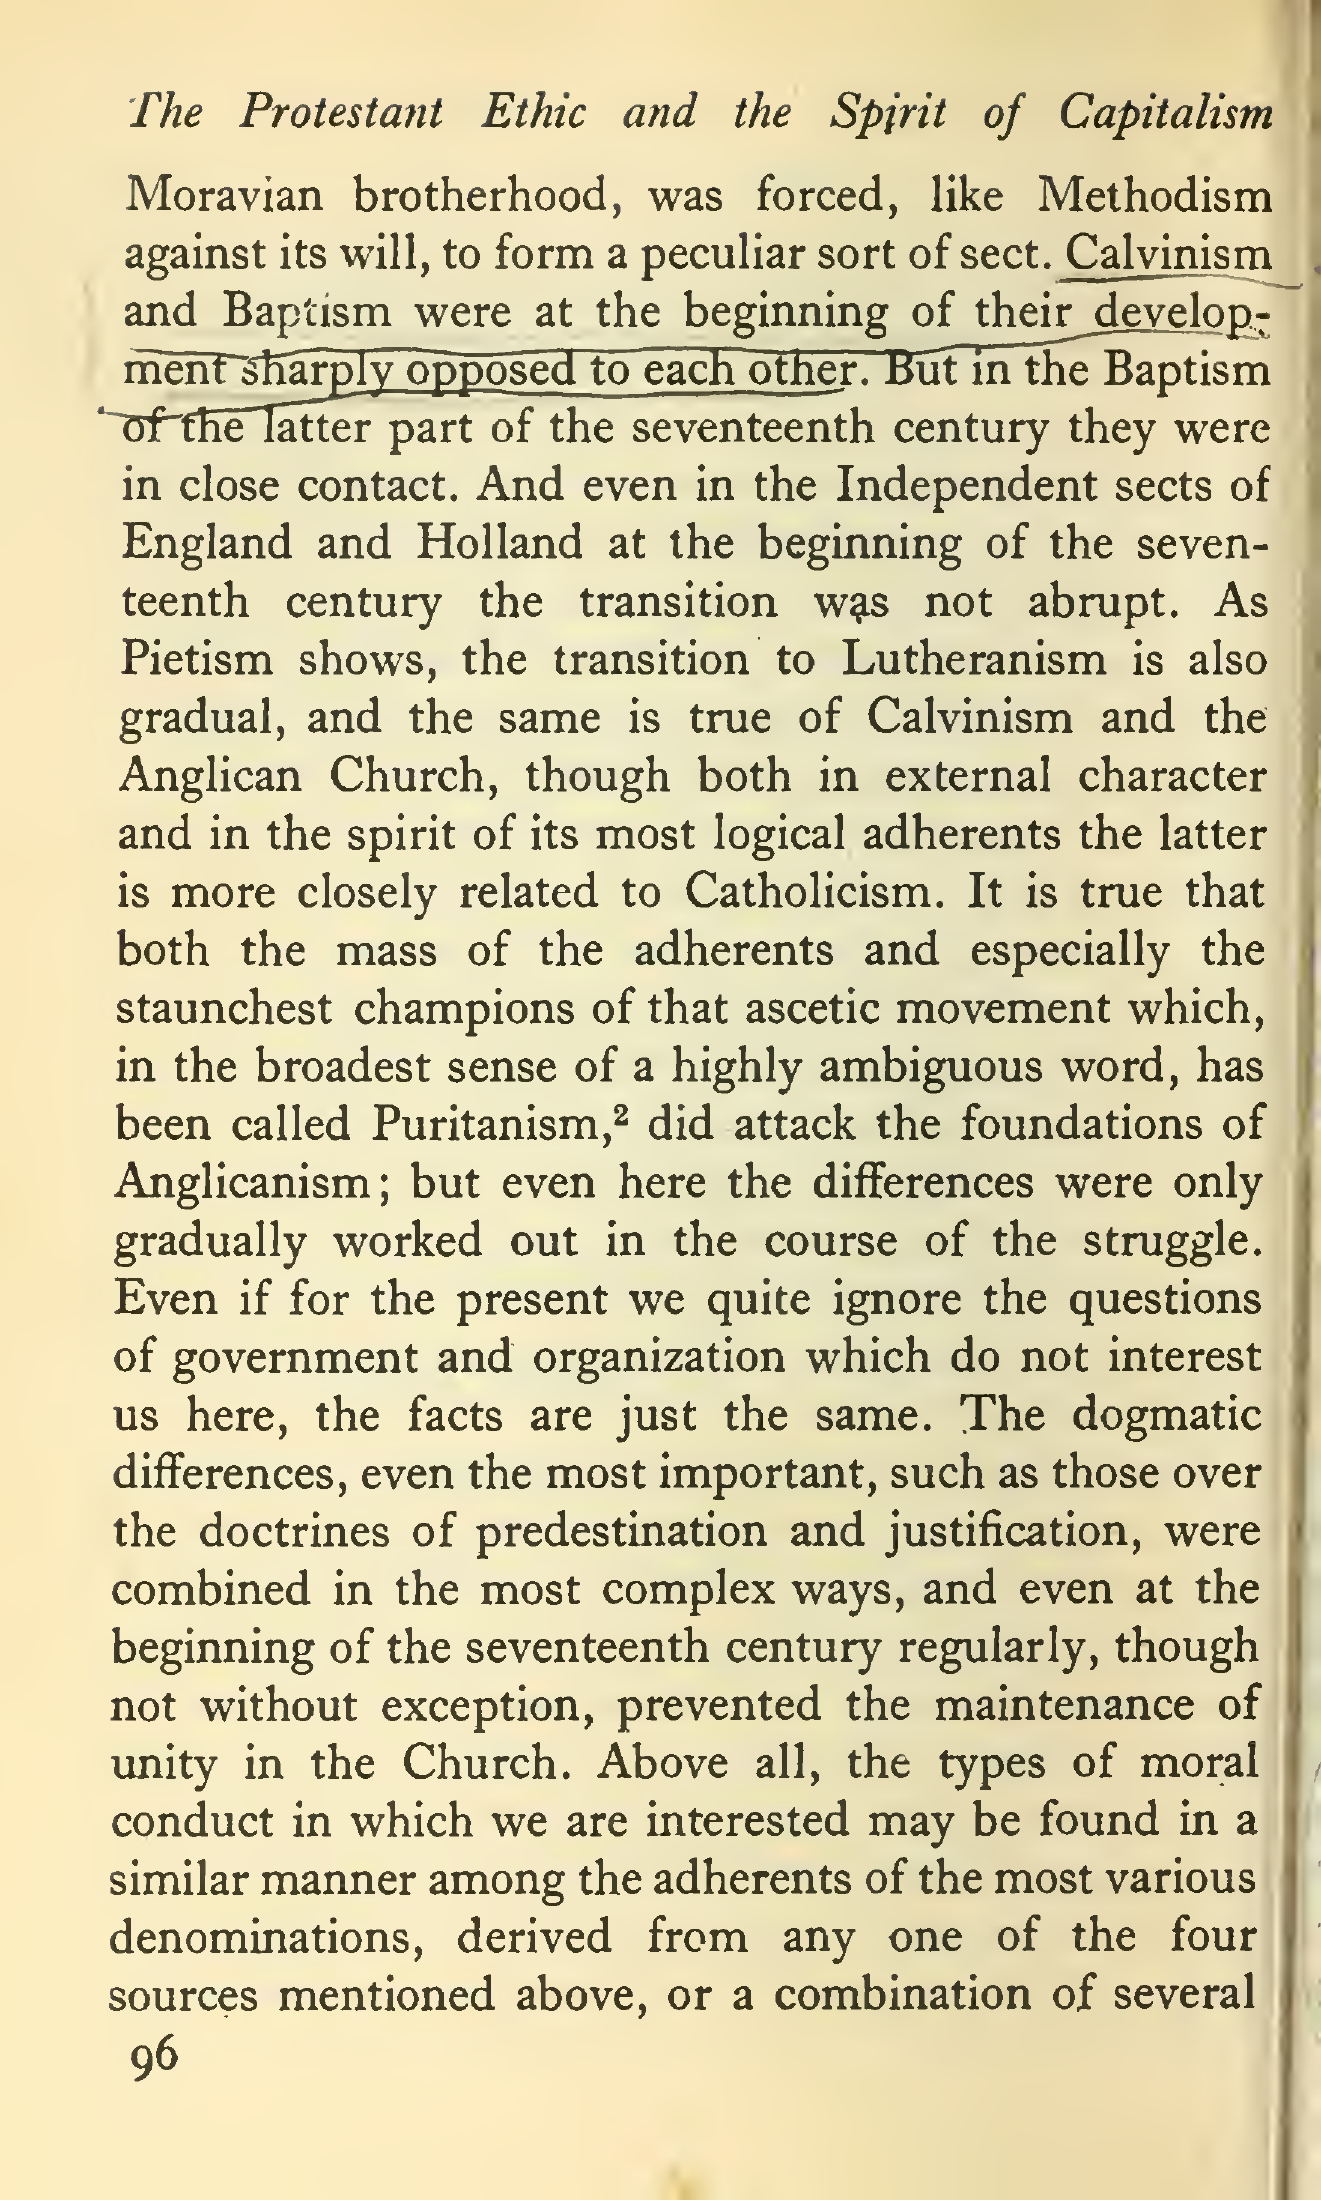 The Protestant Ethic and the Spirit of Capitalism
Moravian brotherhood, was forced, like Methodism
against its will, to form a peculiar sort of sect. Calvinism
and Baptism were at the beginning of their develop-
ment sharply opposed to each other. But in the Baptism
of the latter part of the seventeenth century they were
in close contact. And even in the Independent sects of
England and Holland at the beginning of the seven-
teenth century the transition was not abrupt. As
Pietism shows, the transition to Lutheranism is also
gradual, and the same is true of Calvinism and the
Anglican Church, though both in external character
and in the spirit of its most logical adherents the latter
is more closely related to Catholicism. It is true that
both the mass of the adherents and especially the
staunchest champions of that ascetic movement which,
in the broadest sense of a highly ambiguous word, has
been called Puritanism,² did attack the foundations of
Anglicanism; but even here the differences were only
gradually worked out in the course of the struggle.
Even if for the present we quite ignore the questions
of government and organization which do not interest
us here, the facts are just the same. The dogmatic
differences, even the most important, such as those over
the doctrines of predestination and justification, were
combined in the most complex ways, and even at the
beginning of the seventeenth century regularly, though
not without exception, prevented the maintenance of
unity in the Church. Above all, the types of moral
conduct in which we are interested may be found in a
similar manner among the adherents of the most various
denominations, derived from any one of the four
sources mentioned above, or a combination of several
96